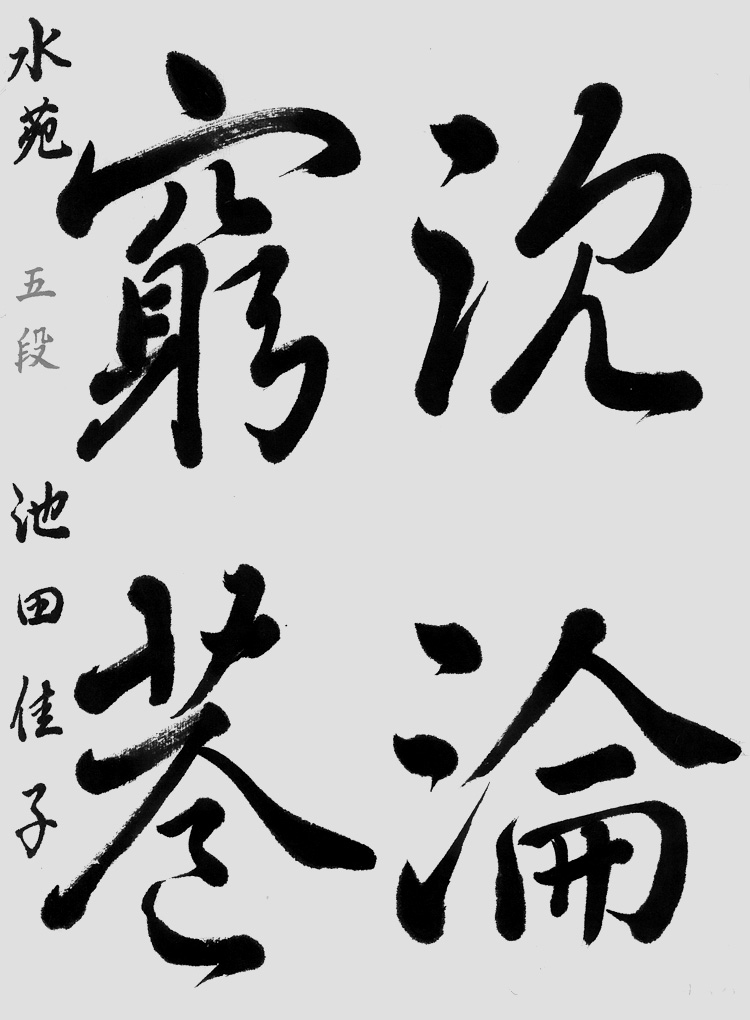 沈淪
窮巷
水苑 五段 池田佳子